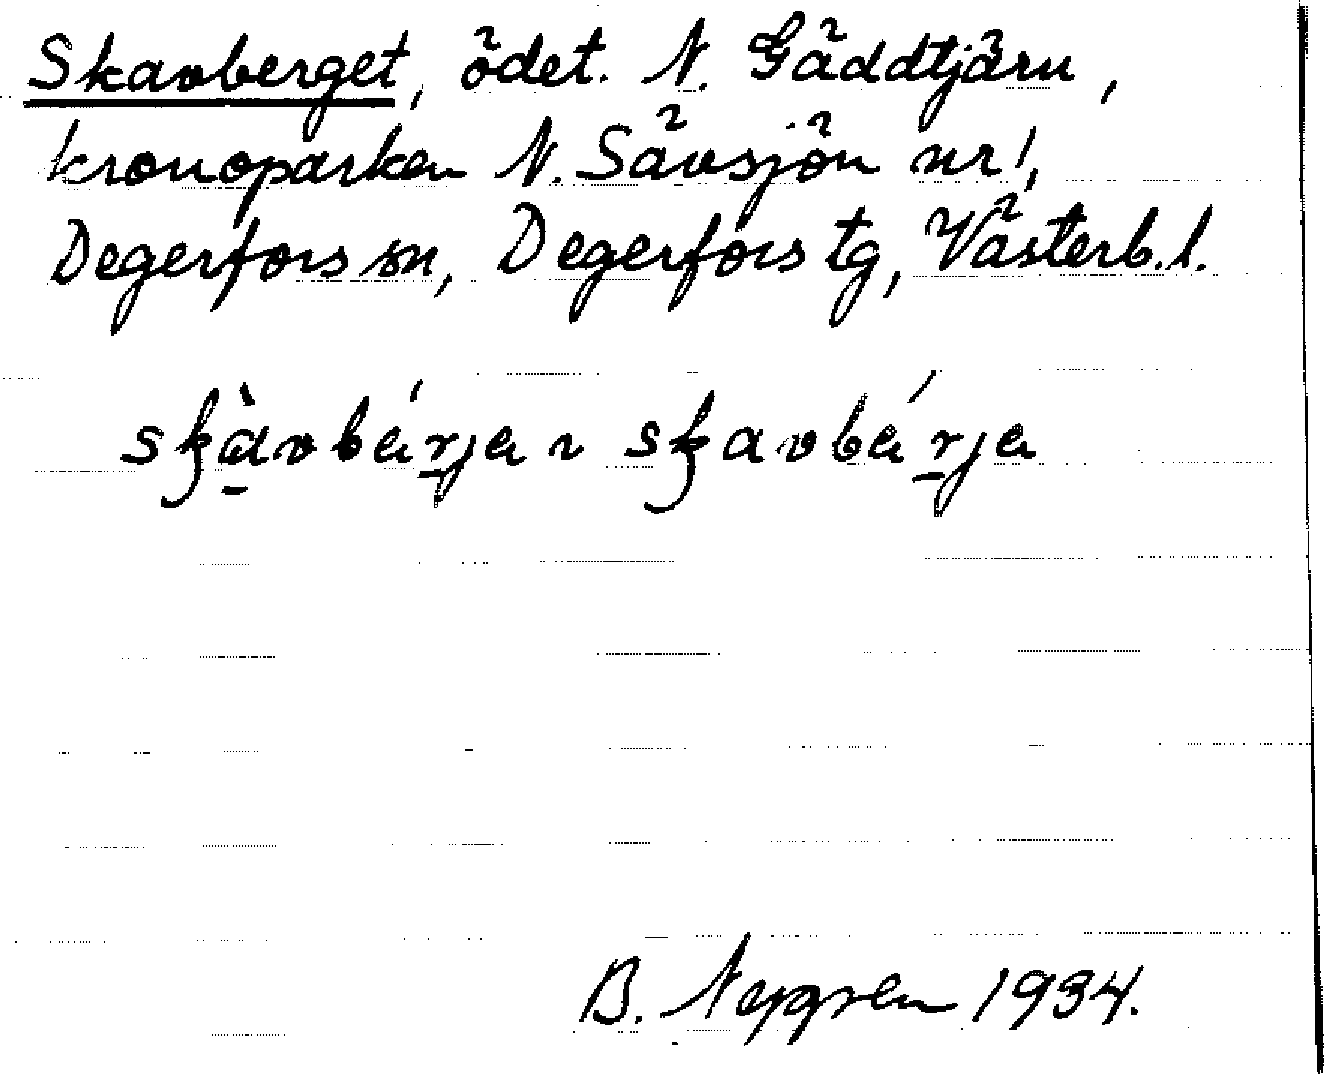 Skavberget, ödet. N. Gäddtjärn,
kronoparken N. Sävsjön nr 1,
Degerfors sn, Degerfors tg, Västerb. l.
skàvbárja ~ skavbárja
B. Nygren 1934.